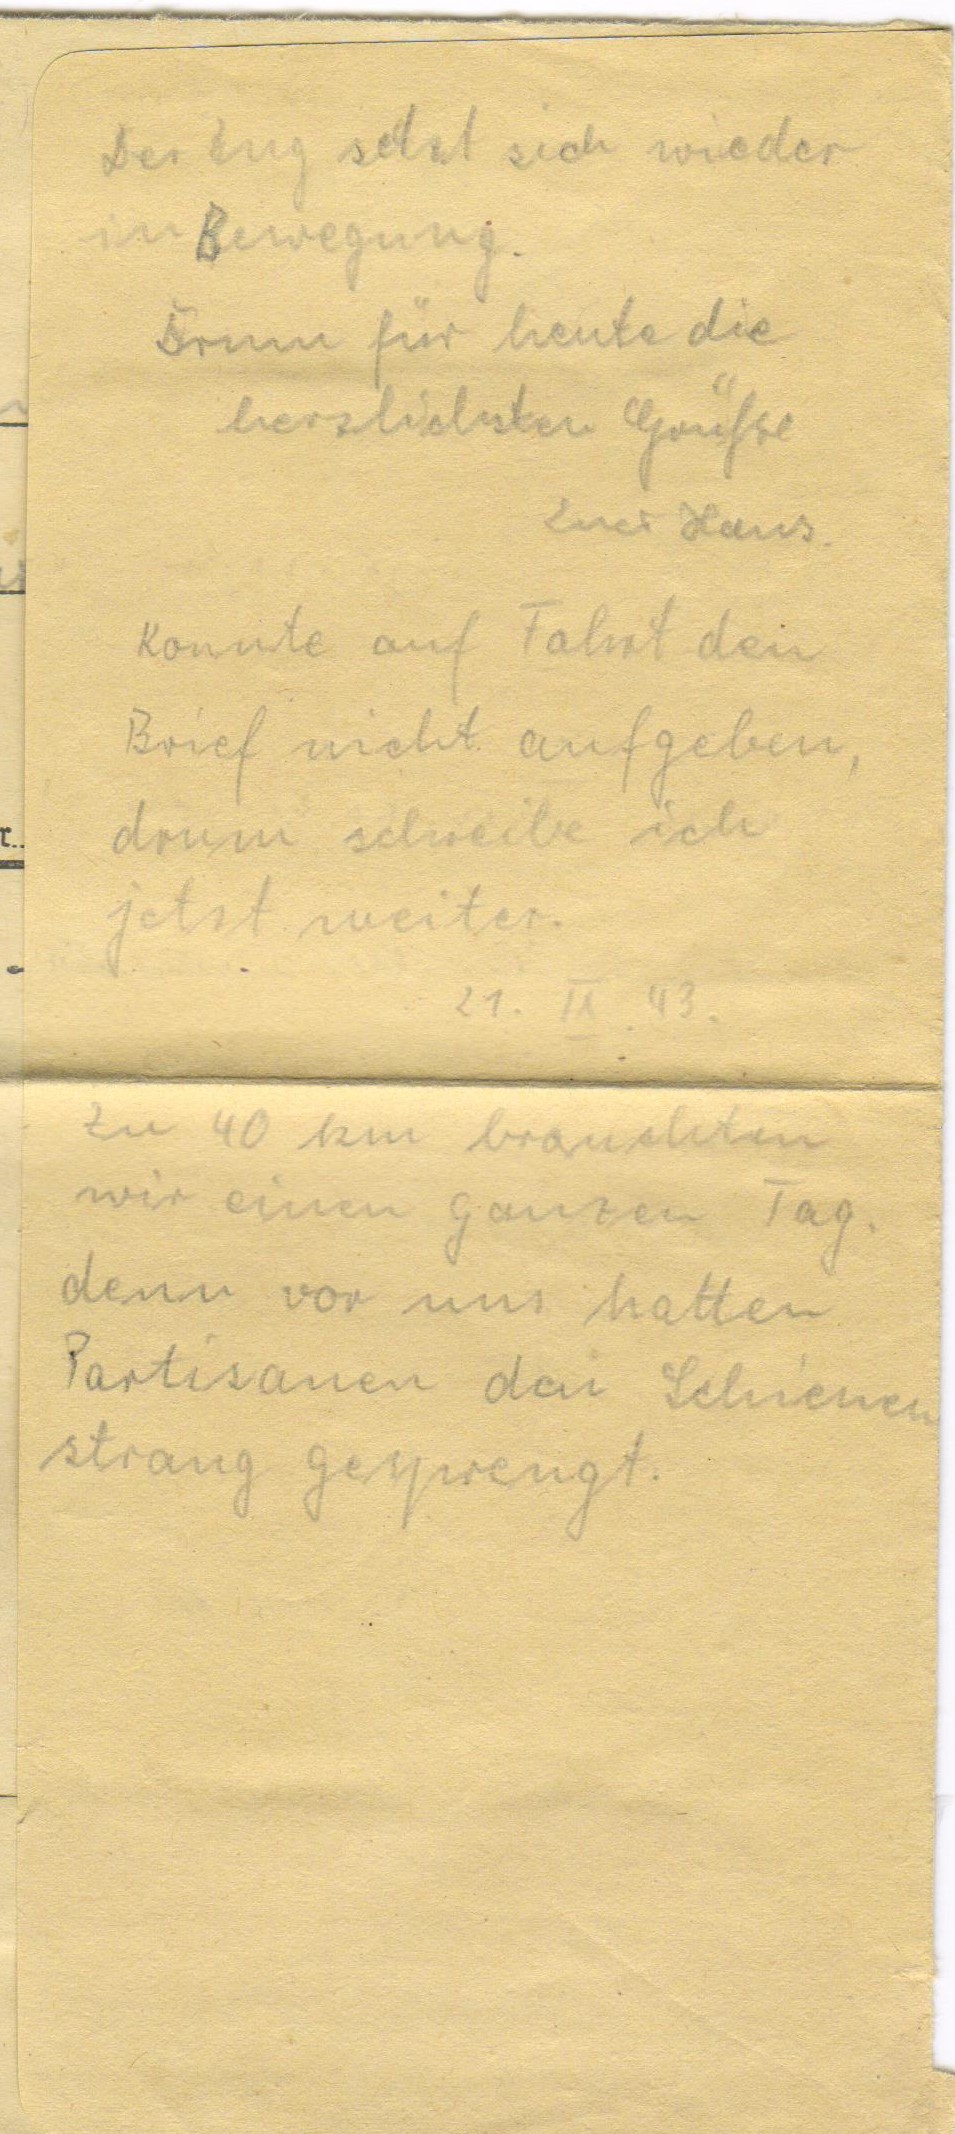 Der Zug setzt sich wieder
in Bewegung.
Drum für heute die
herzlichsten Grüße
Euer Hans.
Konnte auf Fahrt den
Brief nicht aufgeben,
drum schreibe ich
jetzt weiter.
21. IX. 43.
Zu 40 km brauchten
wir einen ganzen Tag.
denn vor uns hatten
Partisanen den Schienen
strang gesprengt.